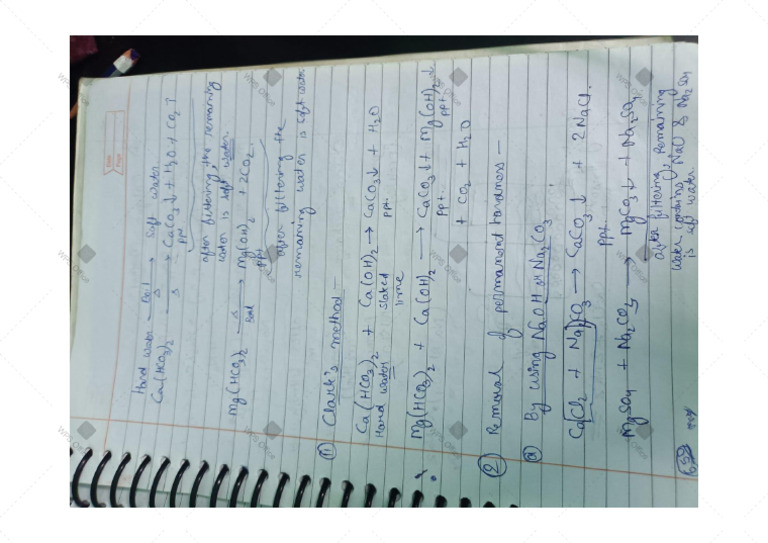 Hard water —Boil/Δ→ Soft water
Ca(HCO3)2 —Δ→ CaCO3↓ + H2O + CO2↑
ppt
after filtering, the remaining
water is soft water.
Mg(HCO3)2 —Δ/Boil→ Mg(OH)2 + 2CO2
ppt
after filtering the
remaining water is soft water
(11) Clark's method:-
Ca(HCO3)2 + Ca(OH)2 → CaCO3↓ + H2O
Hard water slaked lime ppt.
Mg(HCO3)2 + Ca(OH)2 → CaCO3↓ + Mg(OH)2↓
ppt. ppt.
+ CO2 + H2O
(2) Removal of permanent hardness —
(a) By using NaOH or Na2CO3
CaCl2 + Na2CO3 → CaCO3↓ + 2NaCl
ppt.
MgSO4 + Na2CO3 → MgCO3↓ + Na2SO4
after filtering, remaining
water contains NaCl & Na2SO4
is soft water
Date
Page
WPS Office